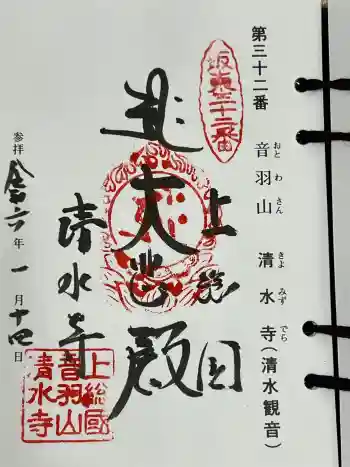 第三十二番 音羽山 清水寺(清水観音)
おとわさん きよみずでら
坂東三十二番
上総国
大悲殿
清水寺
参拝 令和六年 一月十四日
上総國
音羽山
清水寺